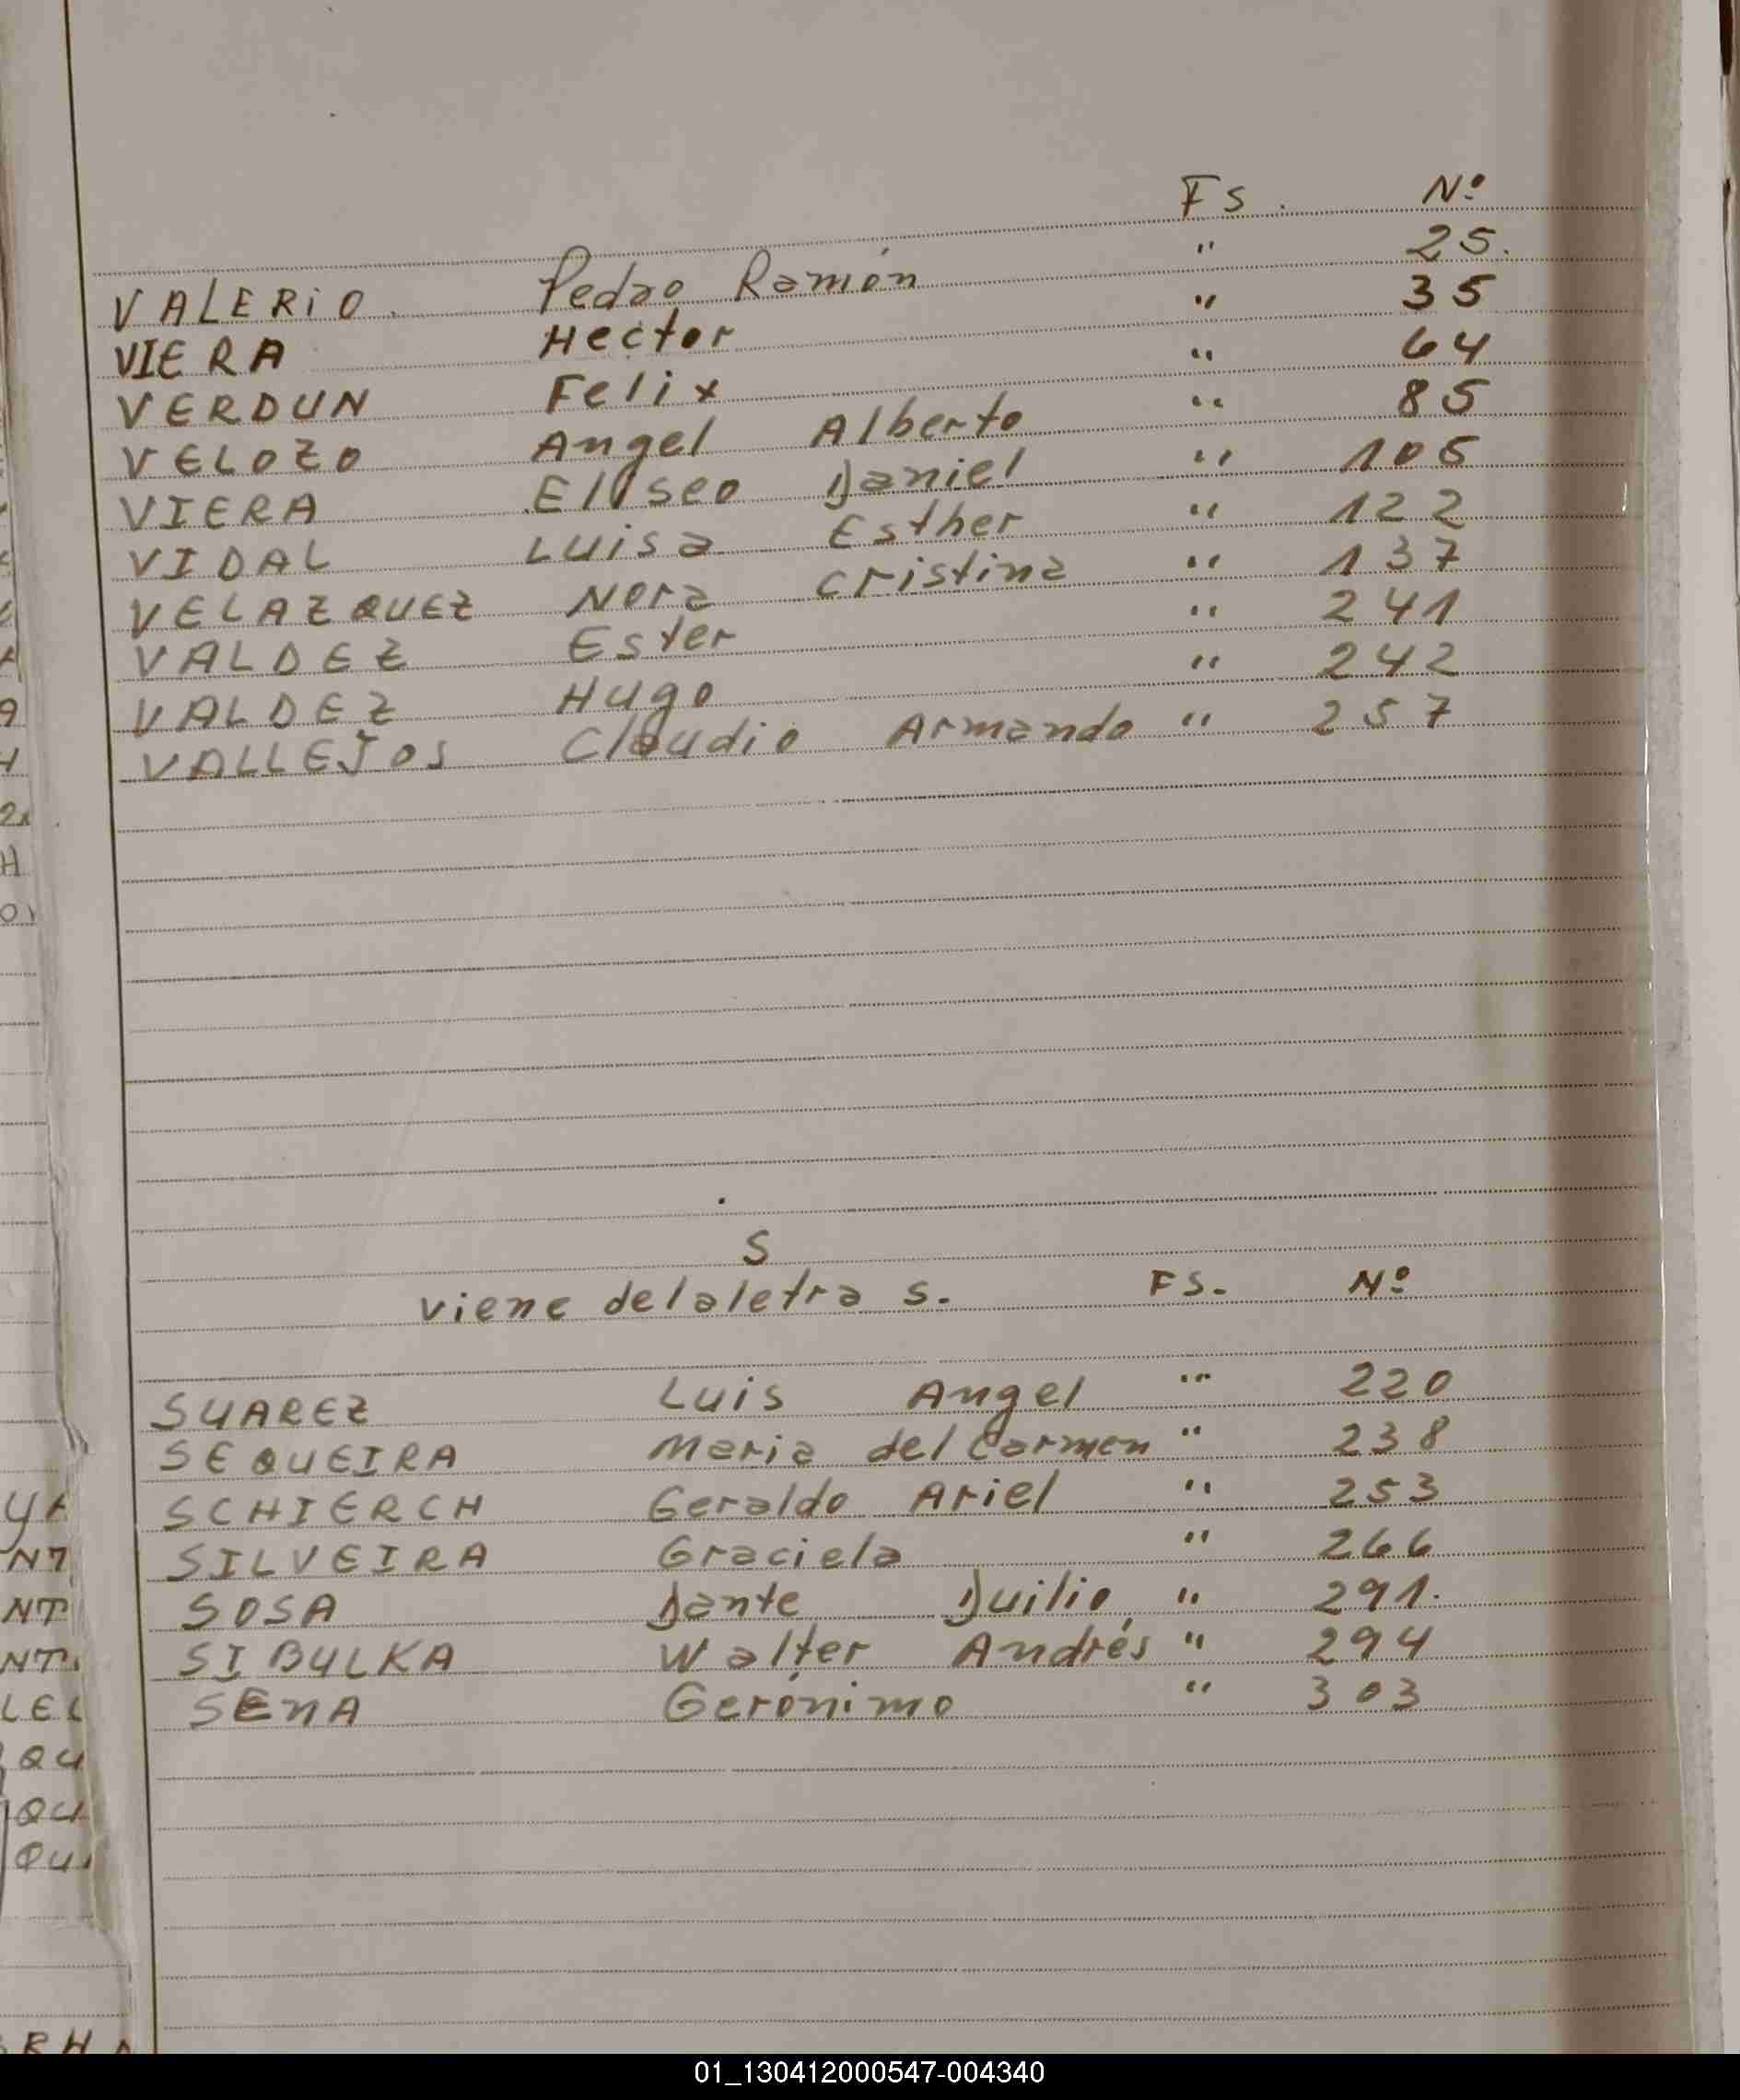 Fs. Nº
VALERiO. Pedro Ramón " 25.
VIERA Hector " 35
VERDUN Felix " 64
VELOZO Angel Alberto " 85
VIERA Eliseo Daniel " 105
VIDAL Luisa Esther " 122
VELAZQUEZ Nora Cristina " 137
VALDEZ Ester " 241
VALDEZ Hugo " 242
VALLEJOS Claudio Armando " 257
S
viene de la letra s. FS. Nº
SUAREZ Luis Angel " 220
SEQUEIRA Maria del Carmen " 238
SCHIERCH Geraldo Ariel " 253
SILVEIRA Graciela " 266
SOSA Dante Duilio " 291.
SIBULKA Walter Andrés " 294
SENA Gerónimo " 303
01_130412000547-004340